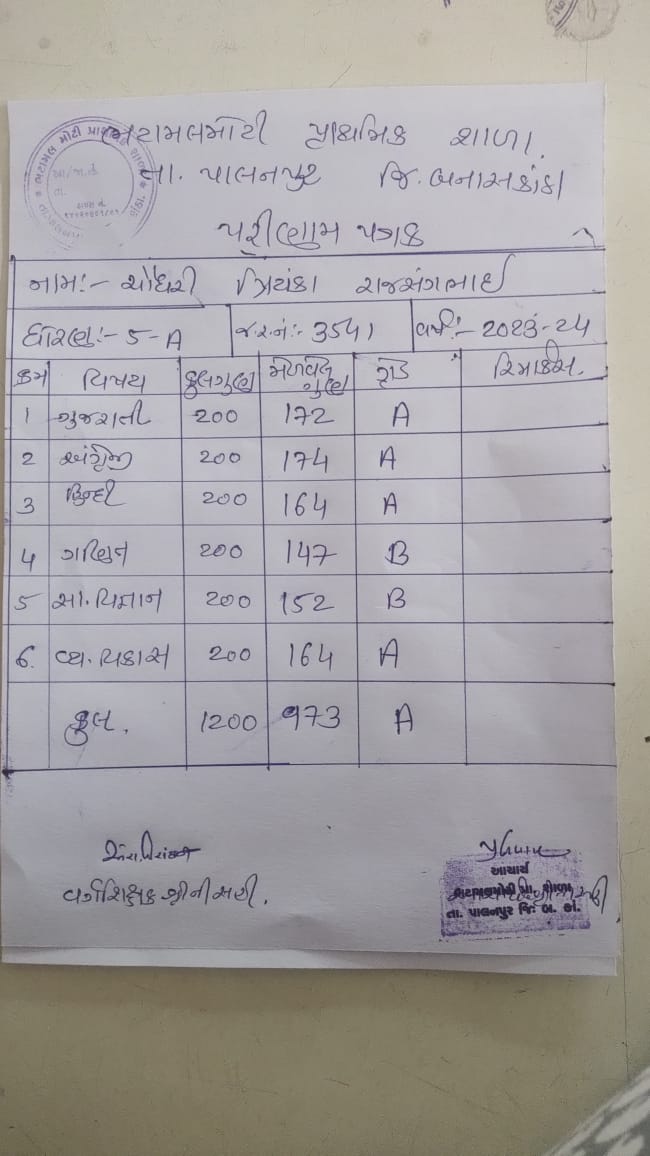 ભટામલમોટી પ્રાથમિક શાળા.
તા. પાલનપુર જિ. બનાસકાંઠા
પરીણામ પત્રક
નામઃ- ચૌધરી પ્રિયંકા રાજસંગભાઈ
ધોરણઃ- 5-A જ.ર.નંઃ- 3541 વર્ષઃ- 2023-24
ક્રમ વિષય કુલગુણ મેળવેલ ગુણ ગ્રેડ રિમાર્કસ.
1 ગુજરાતી 200 172 A
2 અંગ્રેજી 200 174 A
3 હિન્દી 200 164 A
4 ગણિત 200 147 B
5 સા. વિજ્ઞાન 200 152 B
6. વ્ય. વિકાસ 200 164 A
કુલ. 1200 973 A
વર્ગશિક્ષકશ્રીની સહી.
આચાર્ય
ભટામલમોટી પ્રા. શાળા
તા. પાલનપુર જિ. બ. કાં.